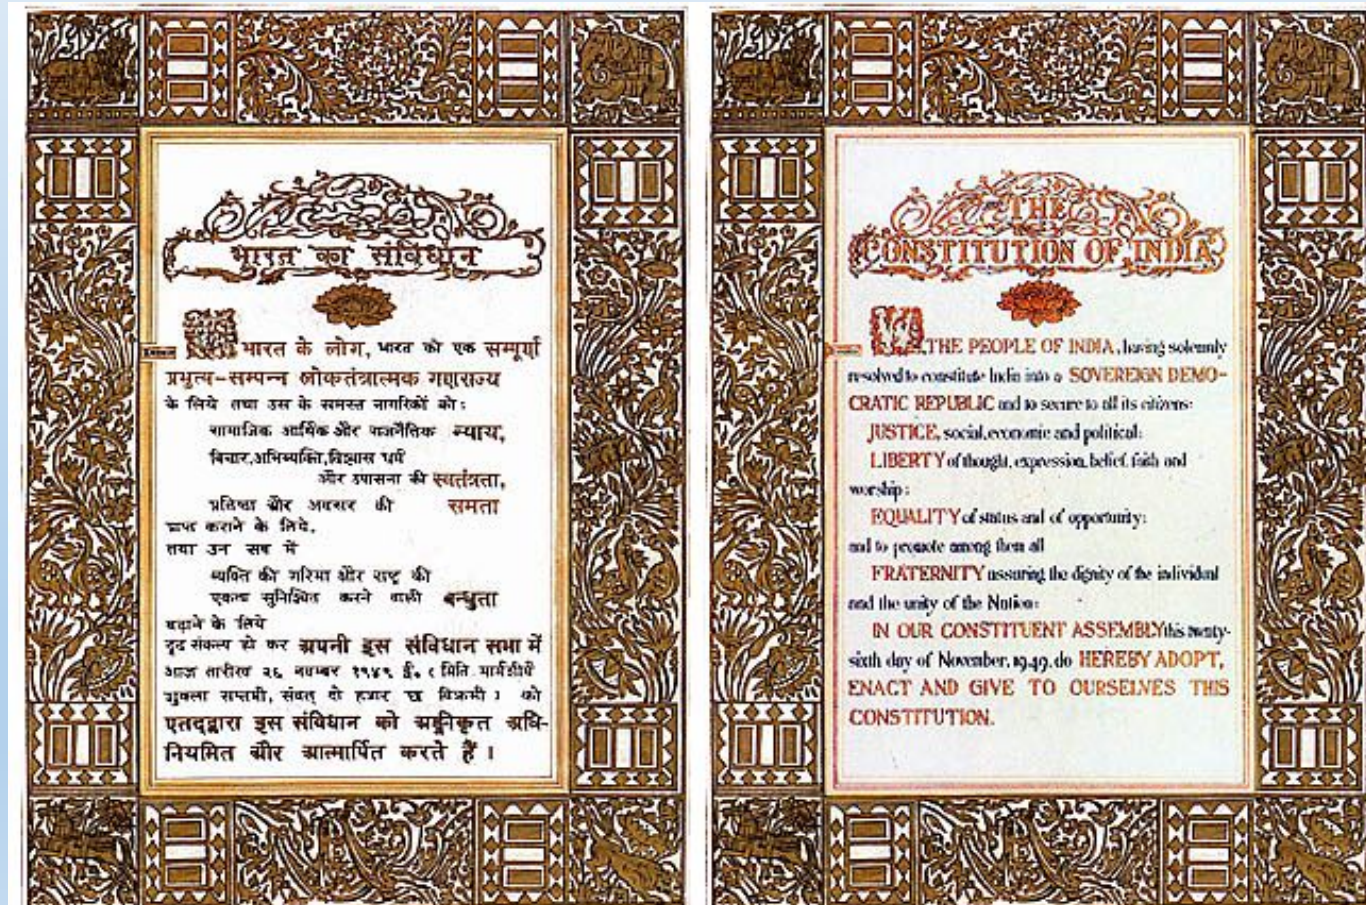 भारत का संविधान
भारत के लोग, भारत को एक सम्पूर्ण
प्रभुत्व-सम्पन्न लोकतंत्रात्मक गणराज्य
के लिये तथा उस के समस्त नागरिकों को:
सामाजिक आर्थिक और राजनैतिक न्याय,
विचार,अभिव्यक्ति,विश्वास धर्म
और उपासना की स्वतंत्रता,
प्रतिष्ठा और अवसर की समता
प्राप्त कराने के लिये,
तथा उन सब में
व्यक्ति की गरिमा और राष्ट्र की
एकता सुनिश्चित करने वाली बन्धुता
बढ़ाने के लिये
दृढ संकल्प हो कर अपनी इस संविधान सभा में
आज तारीख २६ नवम्बर १९४९ ई. ( मिति मार्गशीर्ष
शुक्ला सप्तमी, संवत् दो हजार छ विक्रमी ) को
एतद्द्वारा इस संविधान को अङ्गीकृत अधि-
नियमित और आत्मार्पित करते हैं ।
THE
CONSTITUTION OF INDIA
WE, THE PEOPLE OF INDIA, having solemnly
resolved to constitute India into a SOVEREIGN DEMO-
CRATIC REPUBLIC and to secure to all its citizens:
JUSTICE, social, economic and political;
LIBERTY of thought, expression, belief, faith and
worship;
EQUALITY of status and of opportunity;
and to promote among them all
FRATERNITY assuring the dignity of the individual
and the unity of the Nation;
IN OUR CONSTITUENT ASSEMBLY this twenty-
sixth day of November, 1949, do HEREBY ADOPT,
ENACT AND GIVE TO OURSELVES THIS
CONSTITUTION.